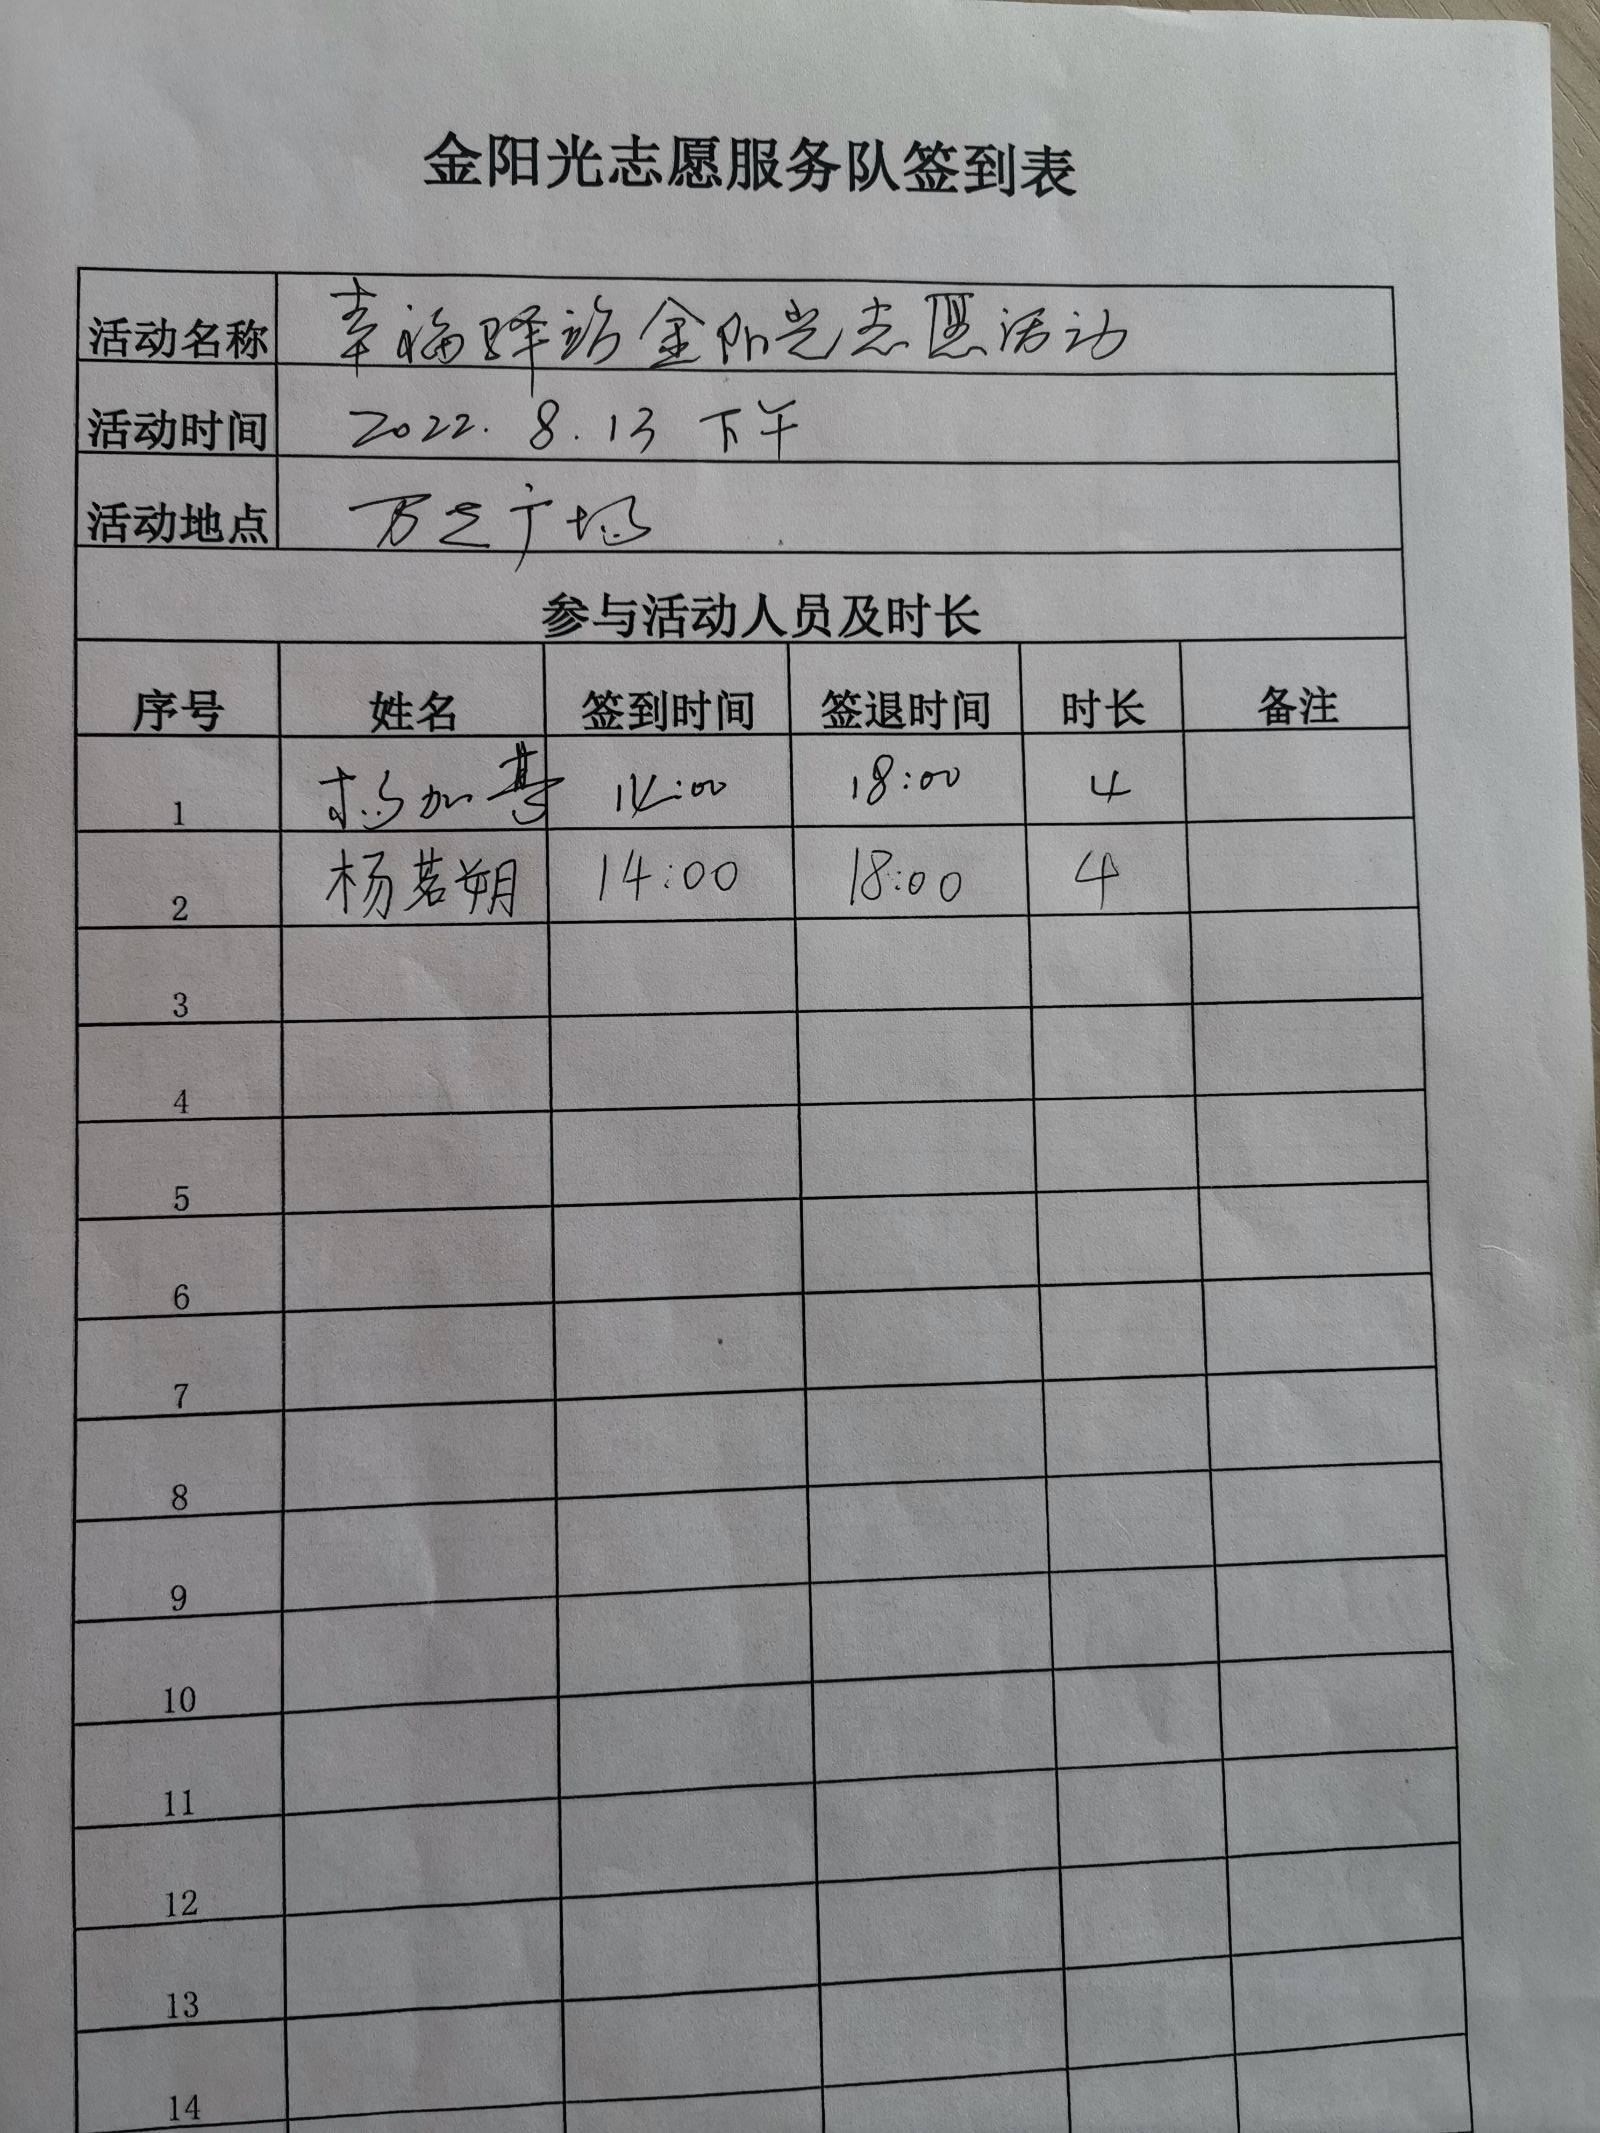 金阳光志愿服务队签到表
活动名称 幸福驿站金阳光志愿活动
活动时间 2022.8.13 下午
活动地点 万达广场
参与活动人员及时长
序号 姓名 签到时间 签退时间 时长 备注
1 杨加 14:00 18:00 4
2 杨茗朔 14:00 18:00 4
3
4
5
6
7
8
9
10
11
12
13
14